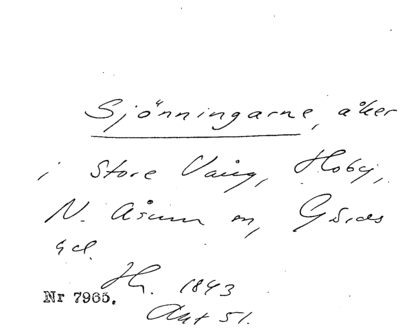 Sjönningarne, åker
i Store Vång, Hoby,
N. Åsum sn, Gärds
hd.
Hy. 1843
Nr 7965. Akt 51.